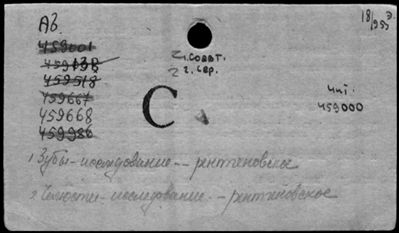 Ав.
18/IX 55 г.
459001
459138
459518
459667
459668
459986
г. Совет.
2 г. сер.
С
чит.
459000
1 Зубы - исследование -- рентгеновское
2 Челюсти - исследование -- рентгеновское